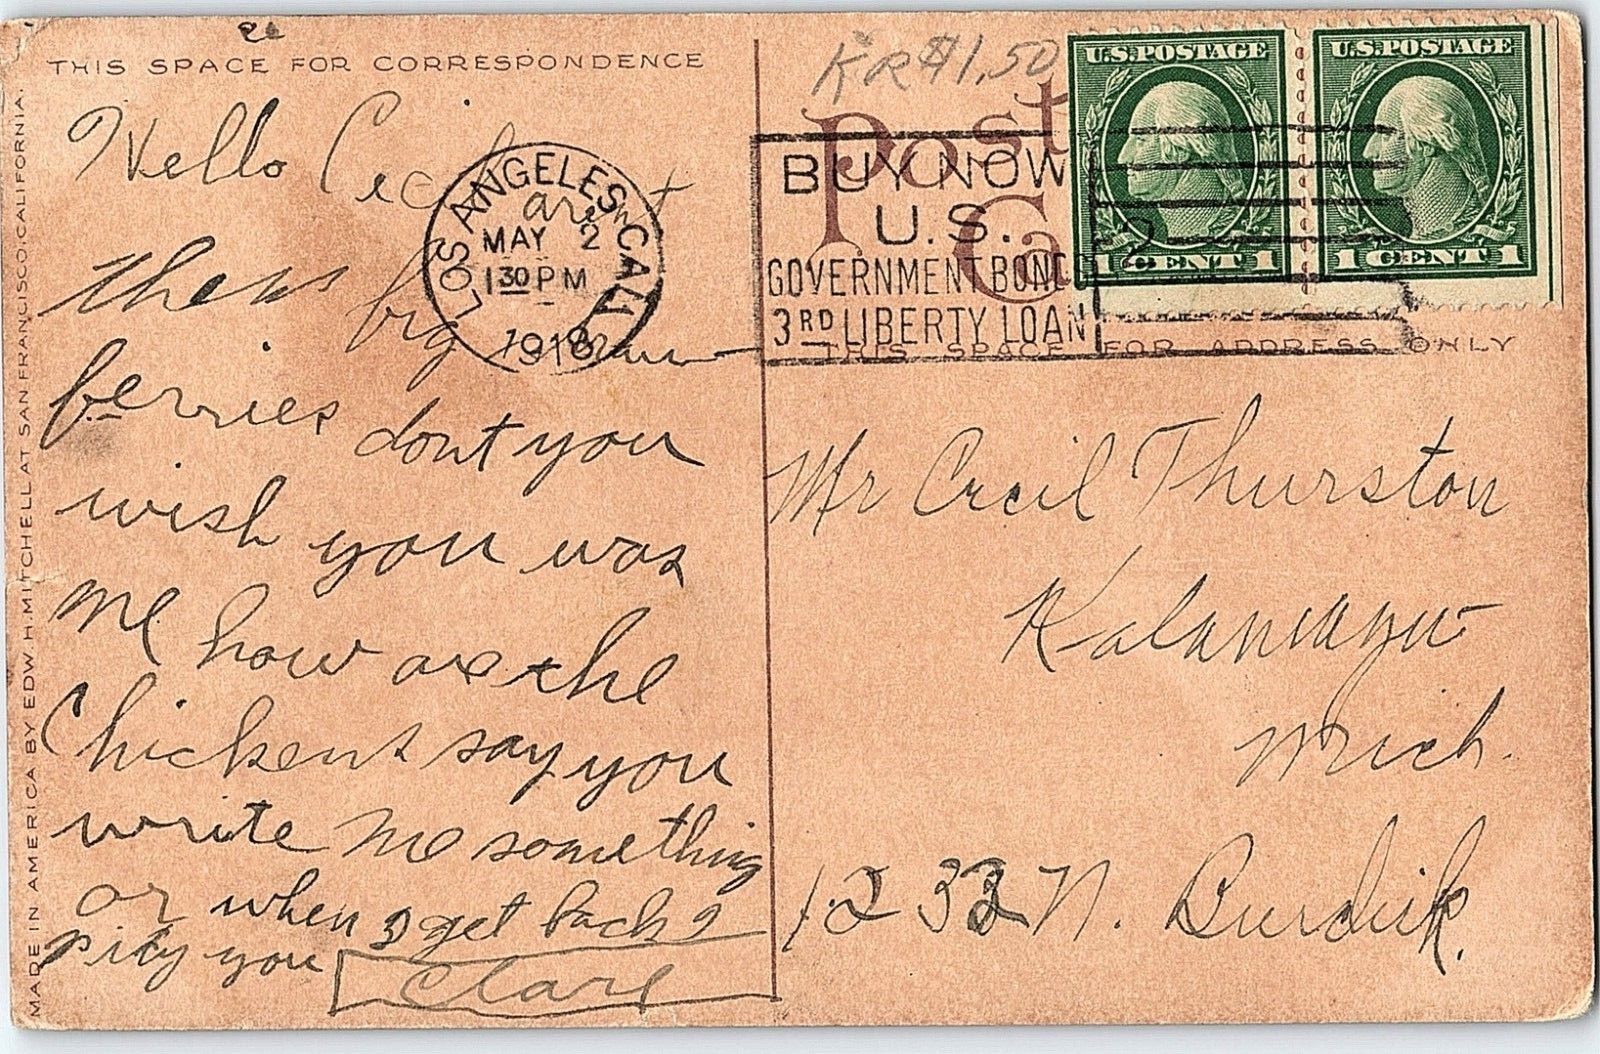 THIS SPACE FOR CORRESPONDENCE
Hello Cecil arnt
these big
berries dont you
wish you was
me how are the
Chickens say you
write me something
or when I get back I
pity you
Clare
MADE IN AMERICA BY EDW. H. MITCHELL AT SAN FRANCISCO, CALIFORNIA.
LOS ANGELES CAL
MAY 2
1 30 PM
1918
KR $1.50
Post Ca
BUY NOW
U.S.
GOVERNMENT BOND
3RD LIBERTY LOAN
2
U.S. POSTAGE
1 CENT 1
U.S. POSTAGE
1 CENT 1
THIS SPACE FOR ADDRESS ONLY
Mr Cecil Thurston
Kalamazoo
Mich.
1233 N. Burdick.